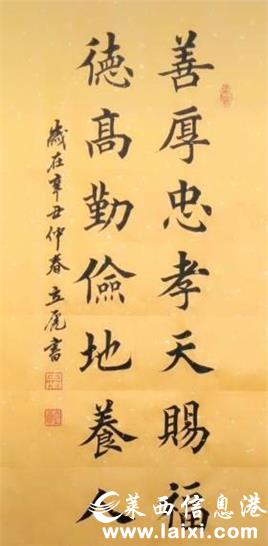 善厚忠孝天賜福
德高勤儉地養人
歲在辛丑仲春立虎書
莱西信息港
www.laixi.com